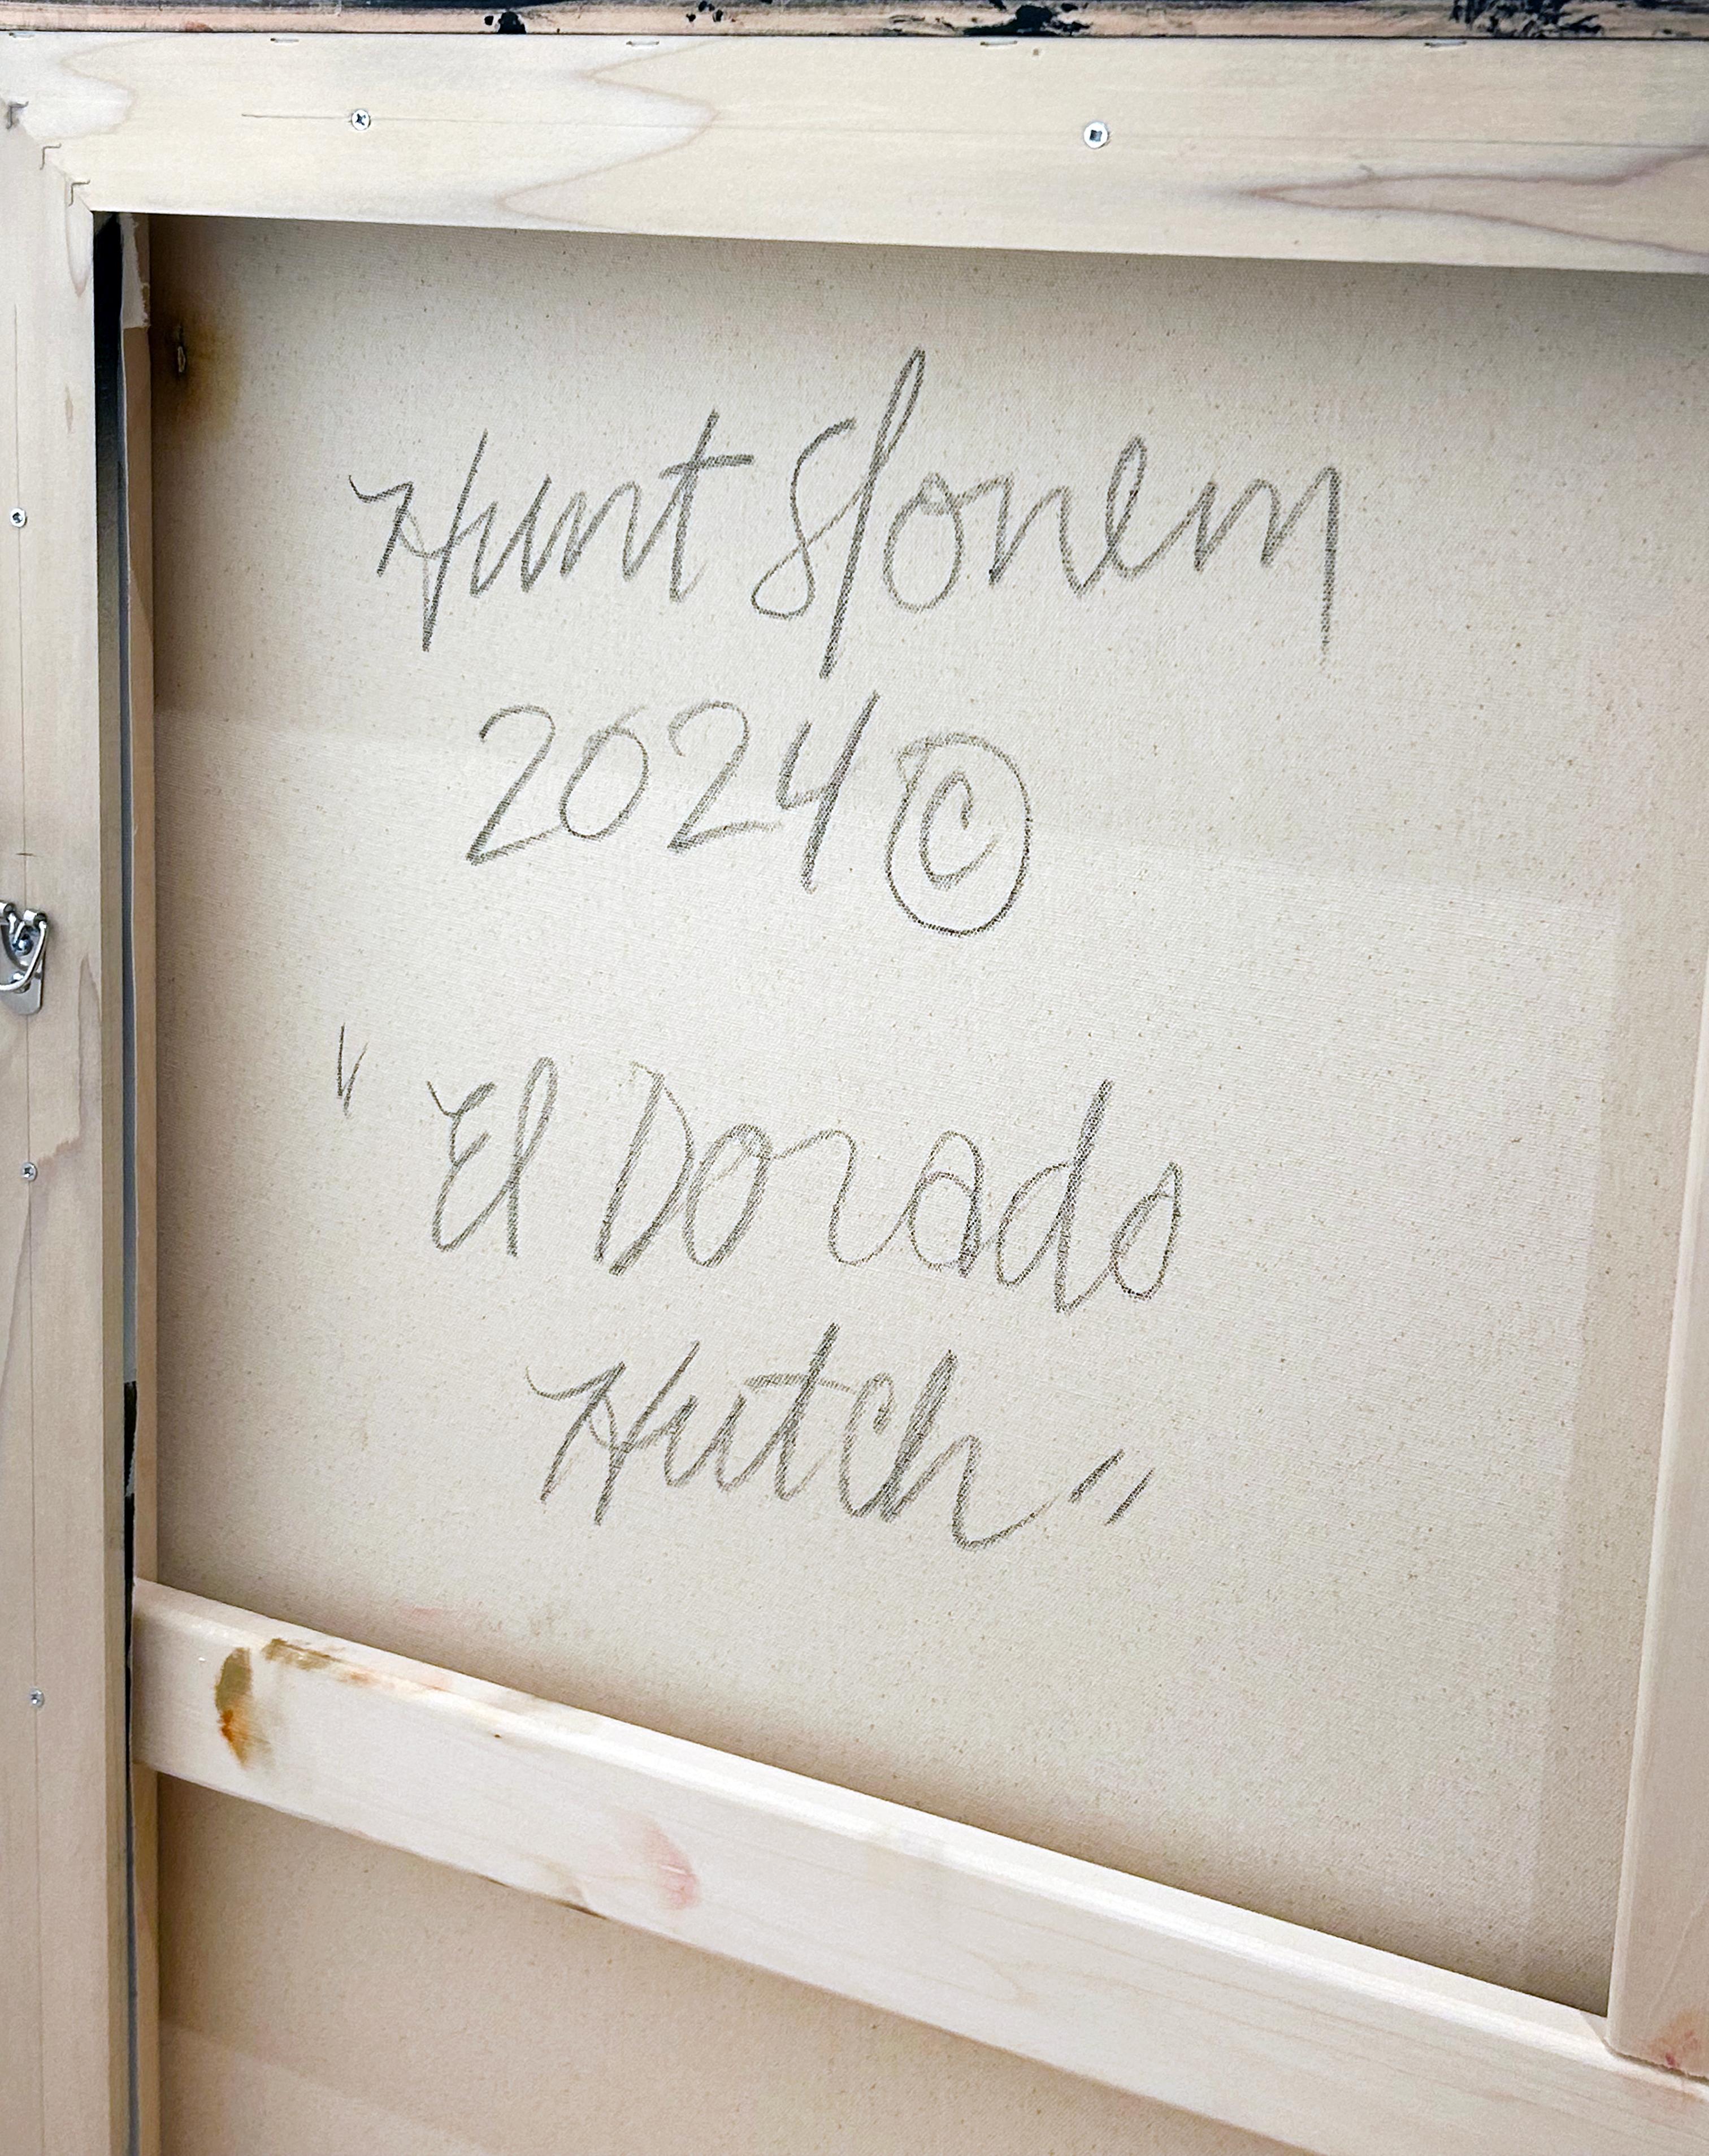 Hunt Slonem
2024 ©
"El Dorado
Hutch"